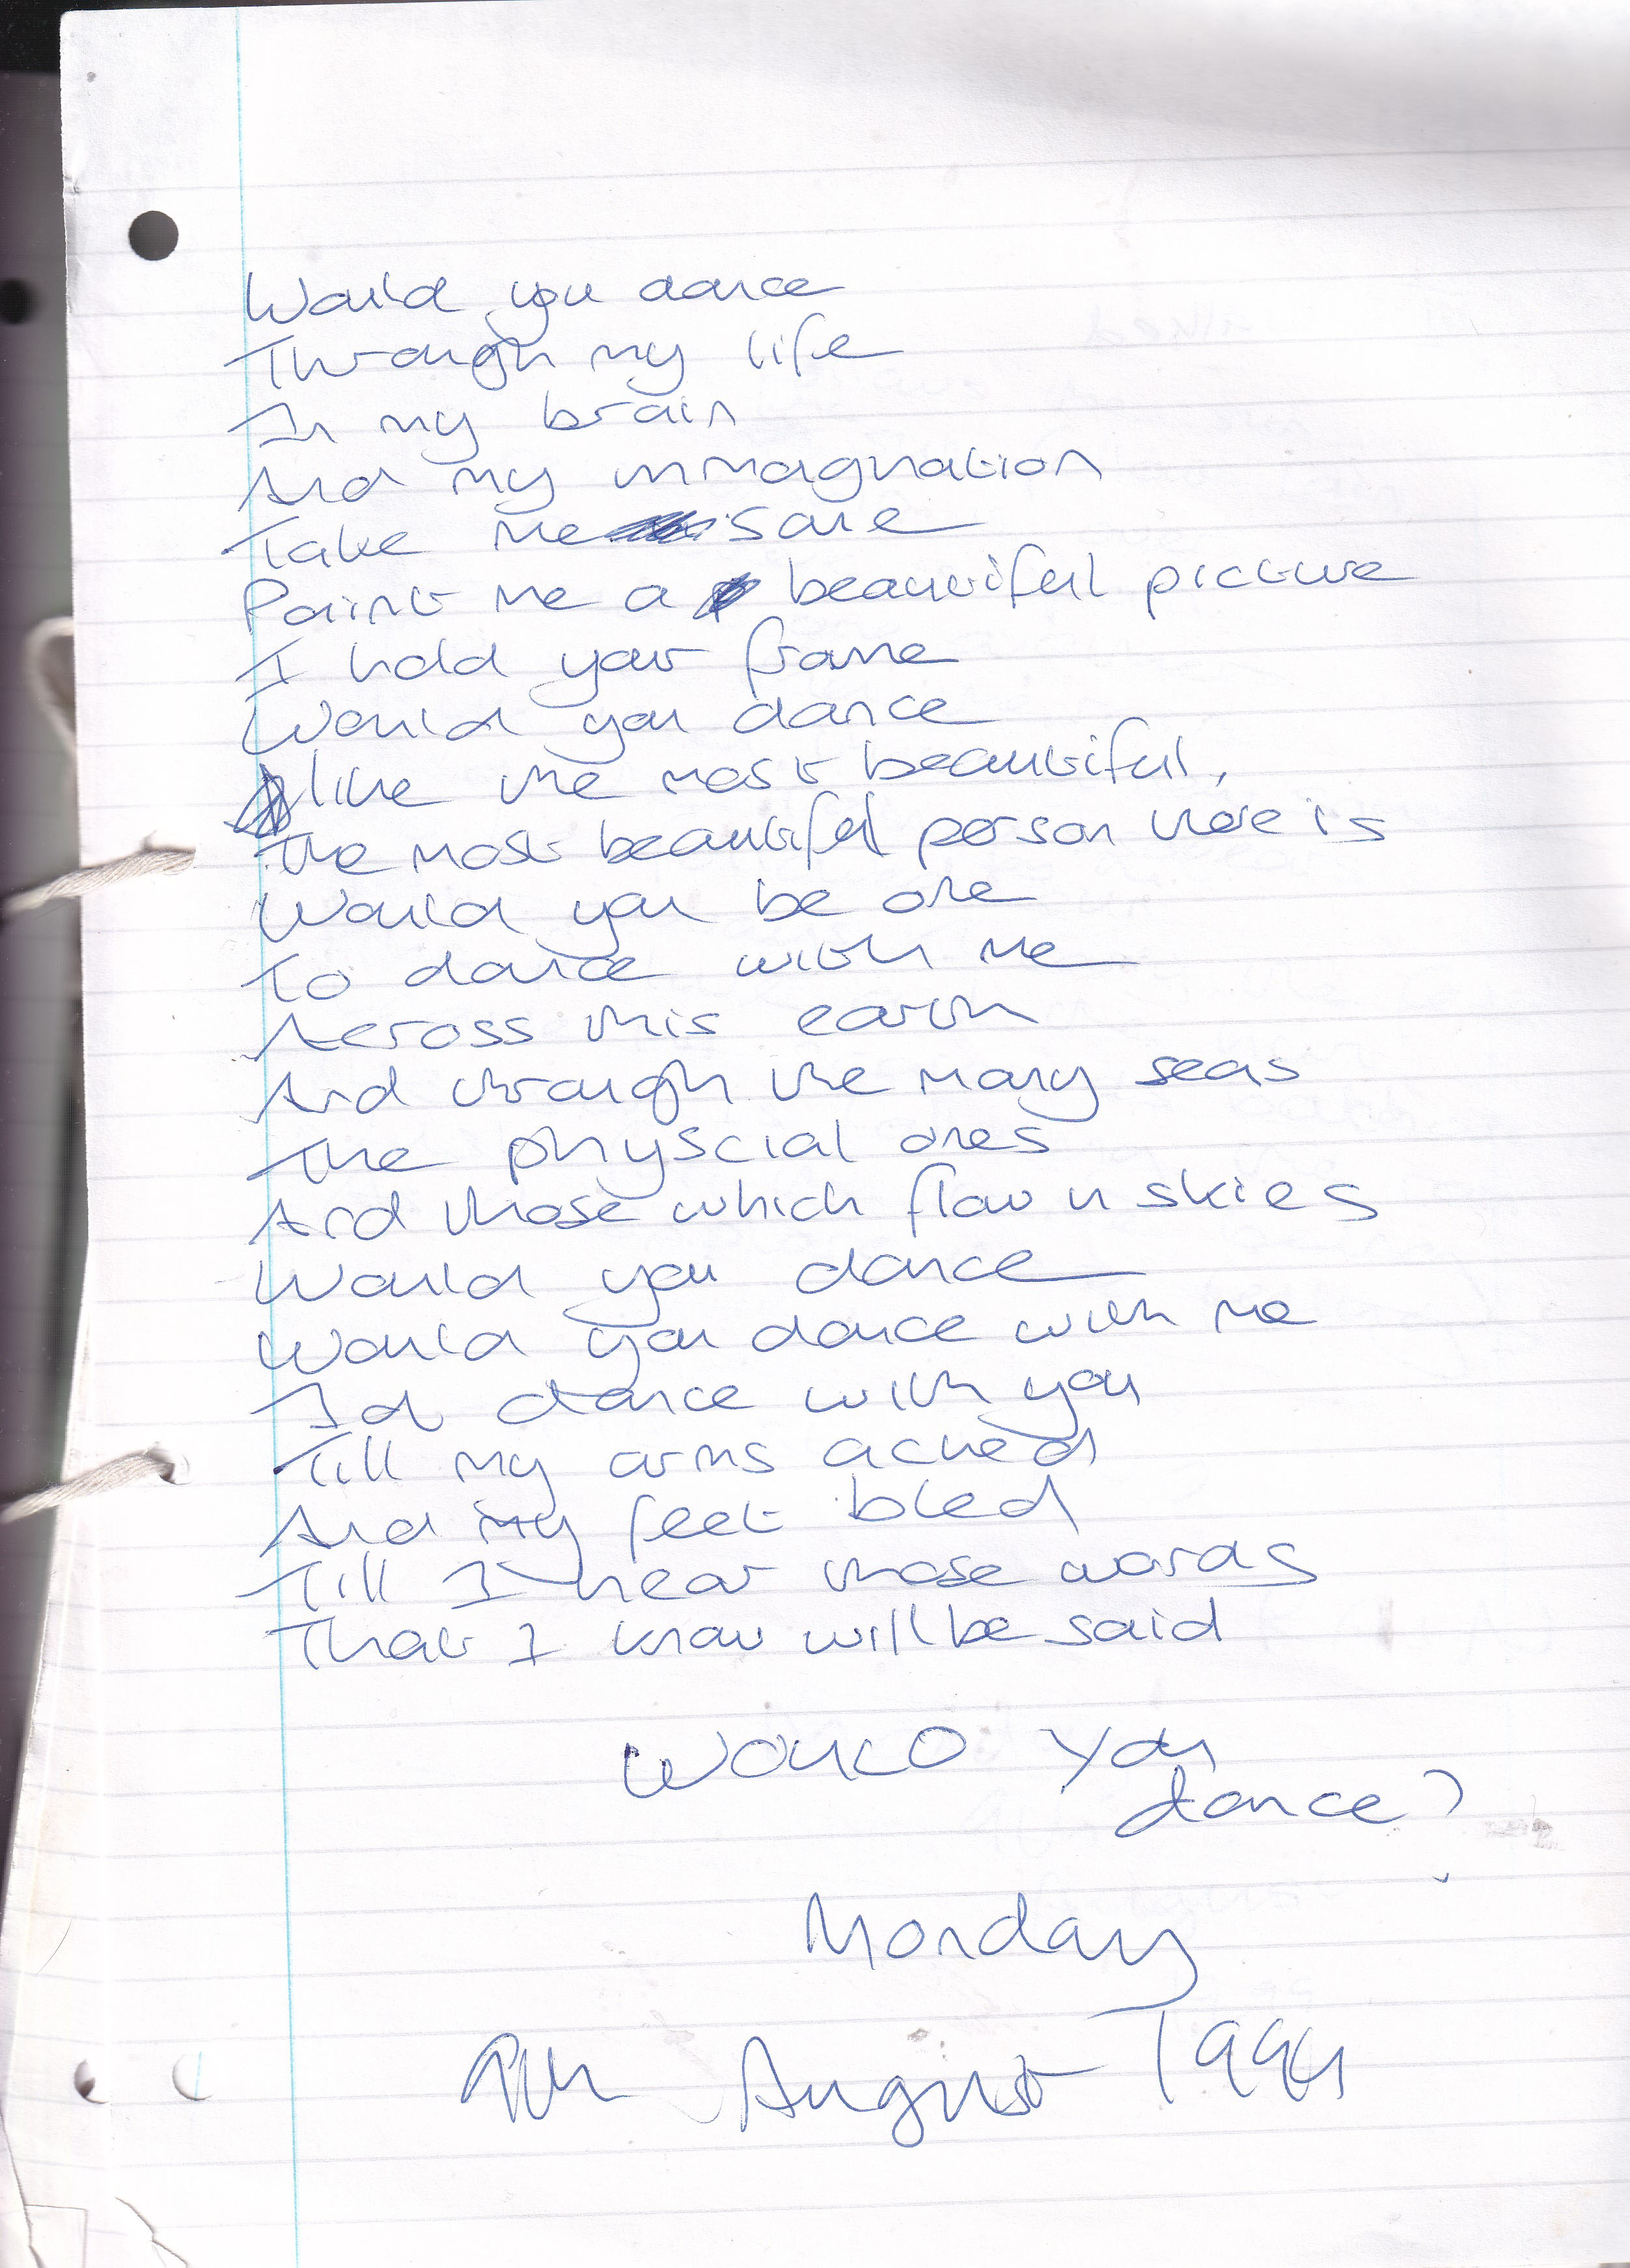 Would you dance
Through my life
In my brain
And my immagnation
Take me sane
Paint me a beautiful picture
I hold your frame
Would you dance
like the most beautiful,
The most beautiful person there is
Would you be one
To dance with me
Across this earth
And through the many seas
The physcial ones
And those which flow in skies
Would you dance
Would you dance with me
Id dance with you
Till my arms ached
And my feet bled
Till I hear those words
That I know will be said
WOULD You
dance?
Monday
9th August 1999